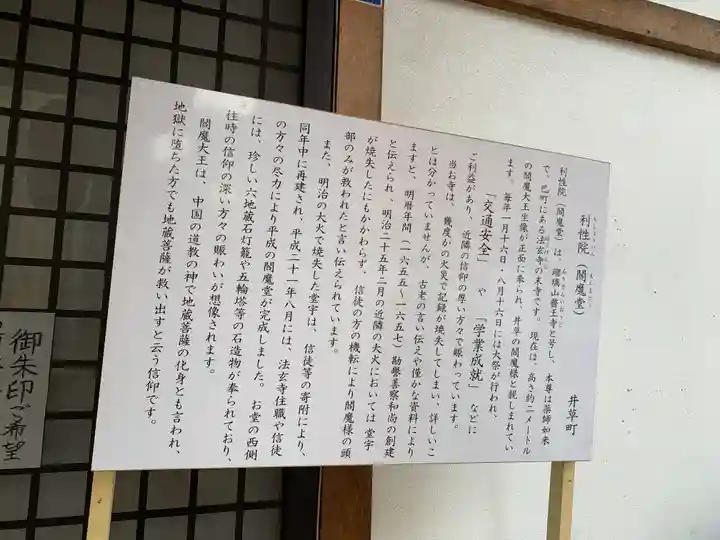 井草町
利性院（閻魔堂）
利性院（閻魔堂）は、瑠璃山醫王寺と号し、本尊は薬師如来
で、巴町にある法玄寺の末寺です。現在は、高さ約二メートル
の閻魔大王坐像が正面に祀られ、井草の閻魔様と親しまれてい
ます。毎年一月十六日・八月十六日には大祭が行われ、
「交通安全」や「学業成就」などに
ご利益があり、近隣の信仰の厚い方々で賑わっています。
当お寺は、幾度かの火災で記録が焼失してしまい、詳しいこ
とは分かっていませんが、古老の言い伝えや僅かな資料により
ますと、明暦年間（一六五五～一六五七）勘譽善察和尚の創建
と伝えられ、明治二十五年二月の近隣の大火においては堂宇
が焼失したにもかかわらず、信徒の方の機転により閻魔様の頭
部のみが救われたと言い伝えられています。
また、明治の大火で焼失した堂宇は、信徒等の寄附により、
同年中に再建され、平成二十一年八月には、法玄寺住職や信徒
の方々の尽力により平成の閻魔堂が完成しました。お堂の西側
には、珍しい六地蔵石灯籠や五輪塔等の石造物が奉られており、
往時の信仰の深い方々の賑わいが想像されます。
閻魔大王は、中国の道教の神で地蔵菩薩の化身とも言われ、
地獄に堕ちた方でも地蔵菩薩が救い出すと云う信仰です。
御朱印ご希望